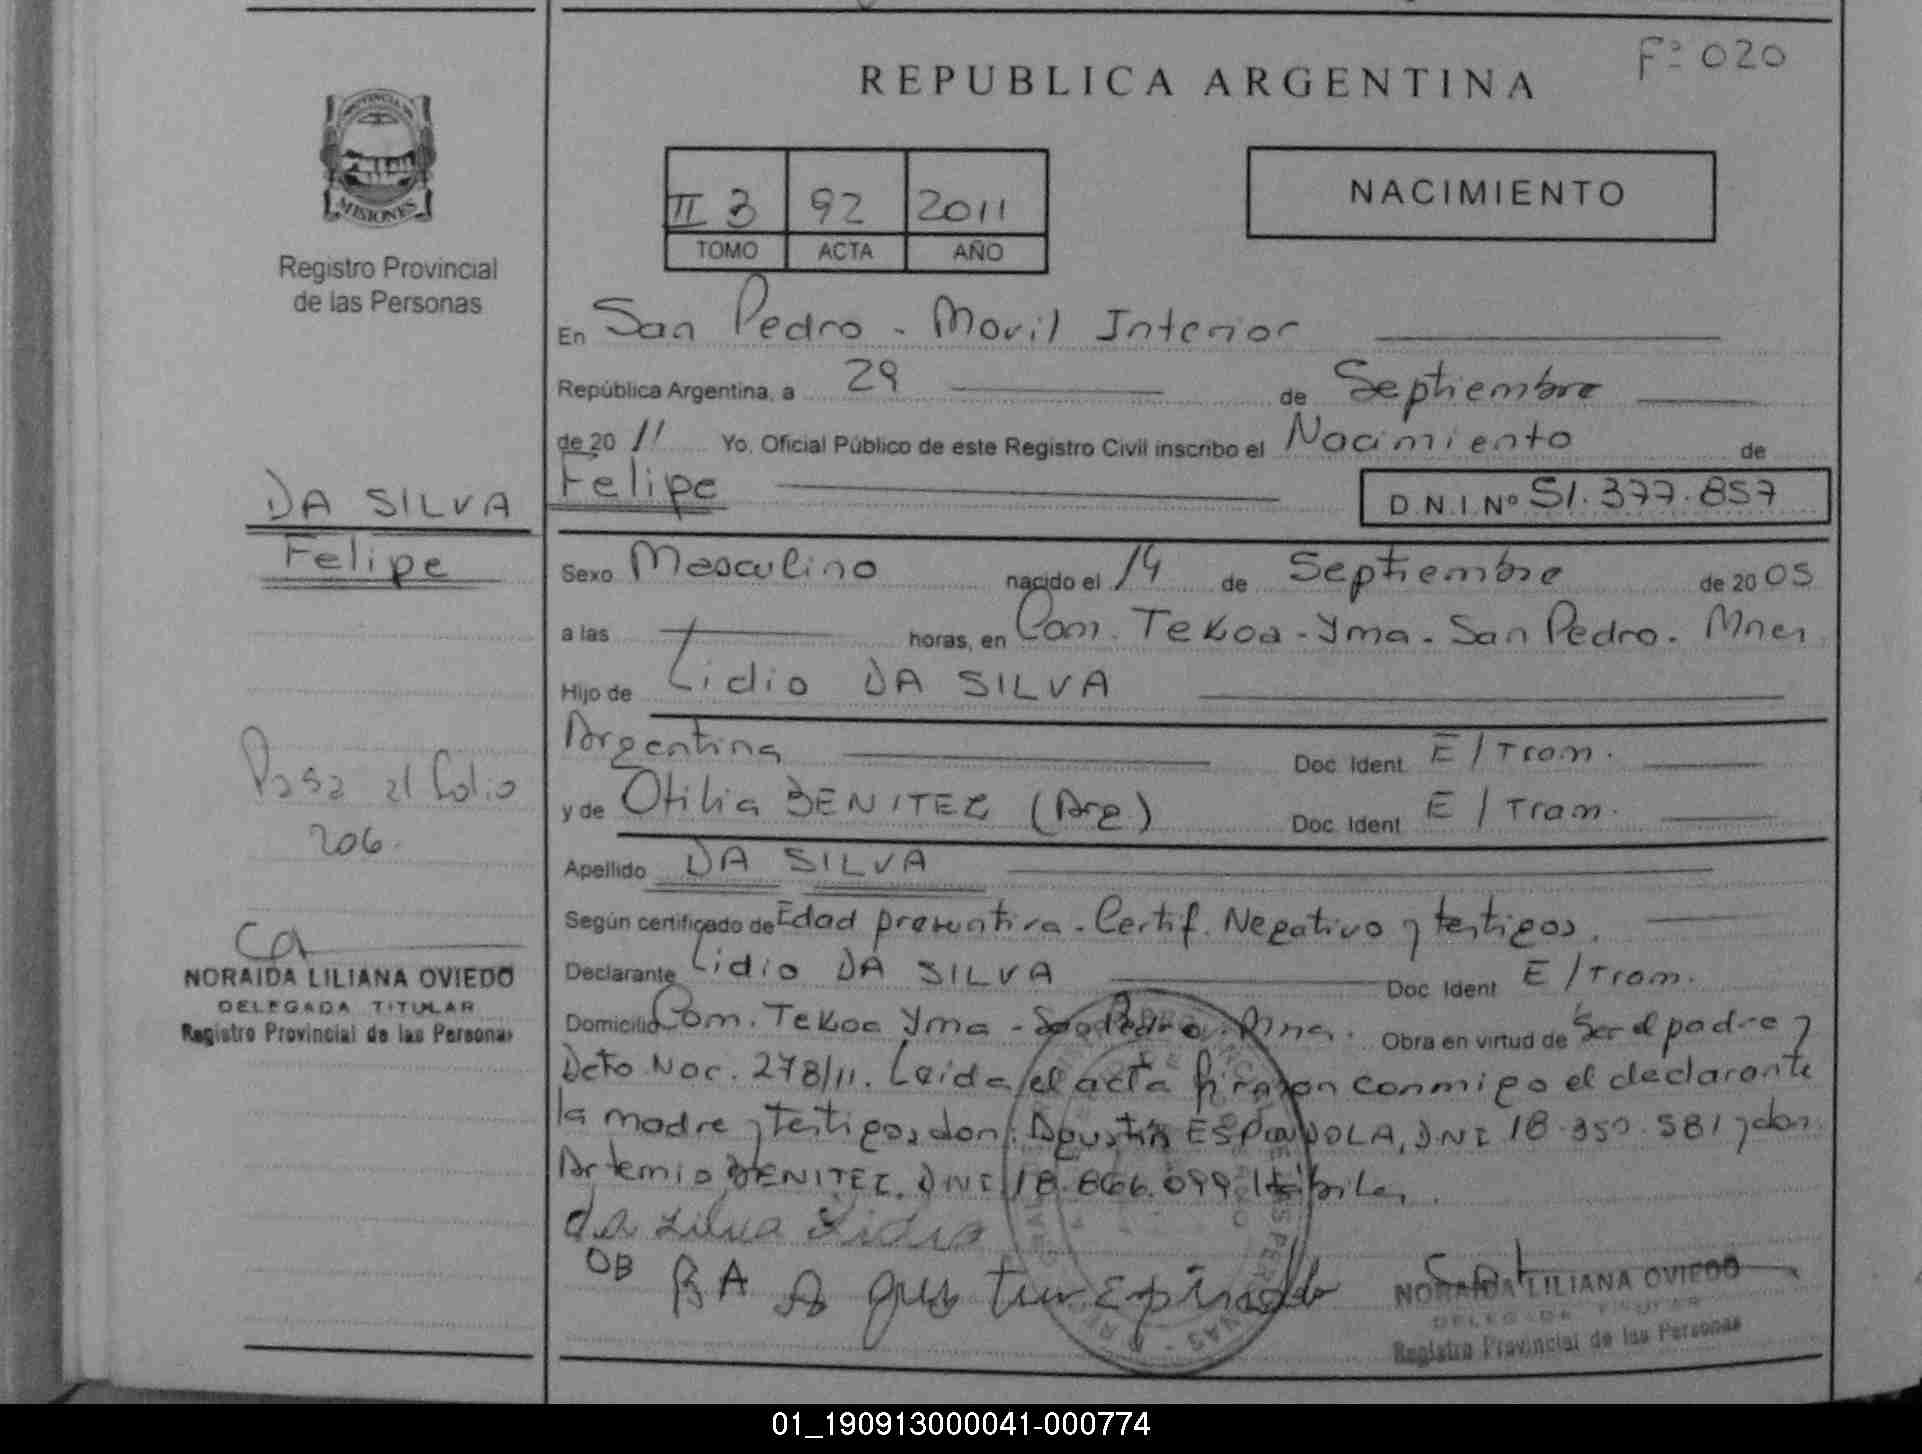 Fº 020
REPUBLICA ARGENTINA
PROVINCIA DE
MISIONES
Registro Provincial
de las Personas
II 3 92 2011
TOMO ACTA AÑO
NACIMIENTO
En San Pedro - Movil Interior
República Argentina, a 29 de Septiembre
de 20 11 Yo, Oficial Público de este Registro Civil inscribo el Nacimiento de
Felipe D.N.I.Nº 51.377.857
DA SILVA
Felipe
Sexo Masculino nacido el 14 de Septiembre de 20 05
a las horas, en Com. Tekoa - Yma - San Pedro - Mnes
Hijo de Lidio DA SILVA
Argentina Doc. Ident. E / Tram.
y de Otilia BENITEZ (Arg) Doc. Ident. E / Tram.
Apellido DA SILVA
Pasa al folio
206.
Según certificado de Edad presuntiva - Certif. Negativo y testigos.
Declarante Lidio DA SILVA Doc. Ident. E / Tram.
Domicilio Com. Tekoa Yma - San Pedro - Mnes. Obra en virtud de Ser el padre y
Dcto Nac. 278/11. Leida el acta firman conmigo el declarante
la madre y testigos don: Agustin ESPINDOLA, DNI 18.350.581 y don
Artemio BENITEZ. DNI 18.866.099 Hábiles.
da silva Lidio
OB BA Agustin Espindola
NORAIDA LILIANA OVIEDO
DELEGADA TITULAR
Registro Provincial de las Personas
NORAIDA LILIANA OVIEDO
DELEGADA TITULAR
Registro Provincial de las Personas
01_190913000041-000774